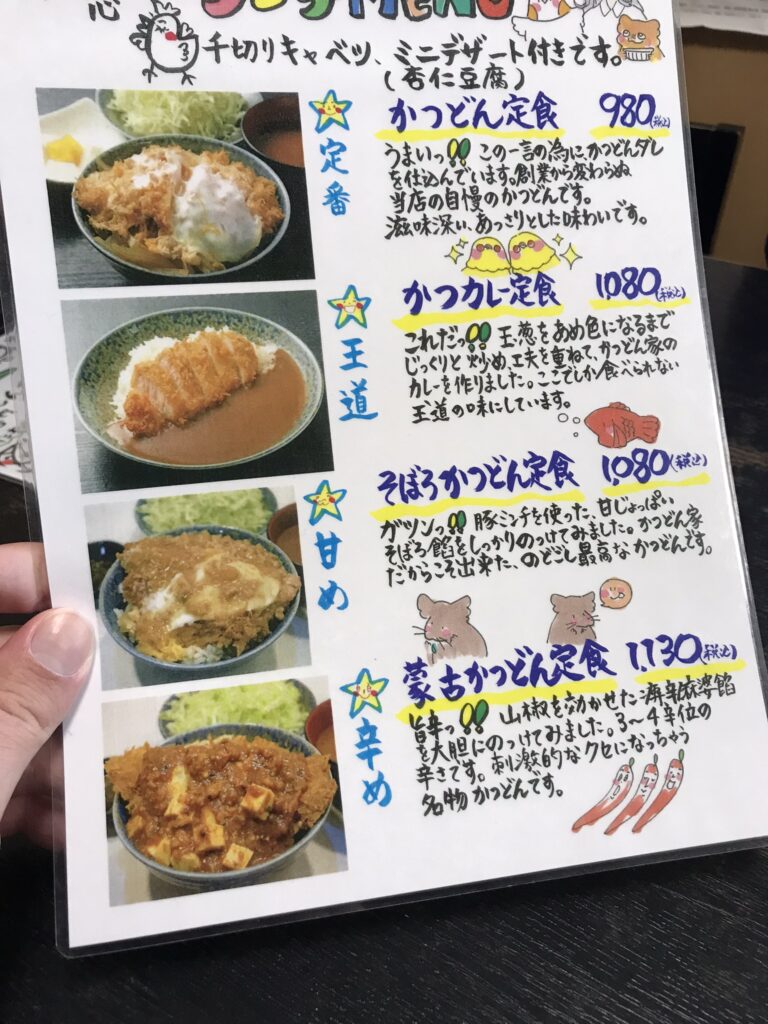 心
ランチMENU
千切りキャベツ、ミニデザート付きです。
(杏仁豆腐)
定番
かつどん定食 980(税込)
うまいっ!! この一言の為に、かつどんダレ
を仕込んでいます。創業から変わらぬ
当店の自慢のかつどんです。
滋味深い、あっさりとした味わいです。
王道
かつカレー定食 1,080(税込)
これだっ!! 玉葱をあめ色になるまで
じっくりと炒め、工夫を重ねて、かつどん家の
カレーを作りました。ここでしか食べられない
王道の味にしています。
甘め
そぼろかつどん定食 1,080(税込)
ガツンっ!! 豚ミンチを使った、甘じょっぱい
そぼろ餡をしっかりのっけてみました。かつどん家
だからこそ出来た、のどごし最高なかつどんです。
辛め
蒙古かつどん定食 1,130(税込)
旨辛っ!! 山椒を効かせた海辛麻婆餡
を大胆にのっけてみました。3〜4辛位の
辛さです。刺激的なクセになっちゃう
名物かつどんです。